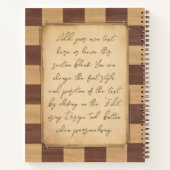 Add your own text
here or leave this
section blank. You can
change the font style
and position of the text
by clicking on the "Edit
using Design Tool" button
when personalising